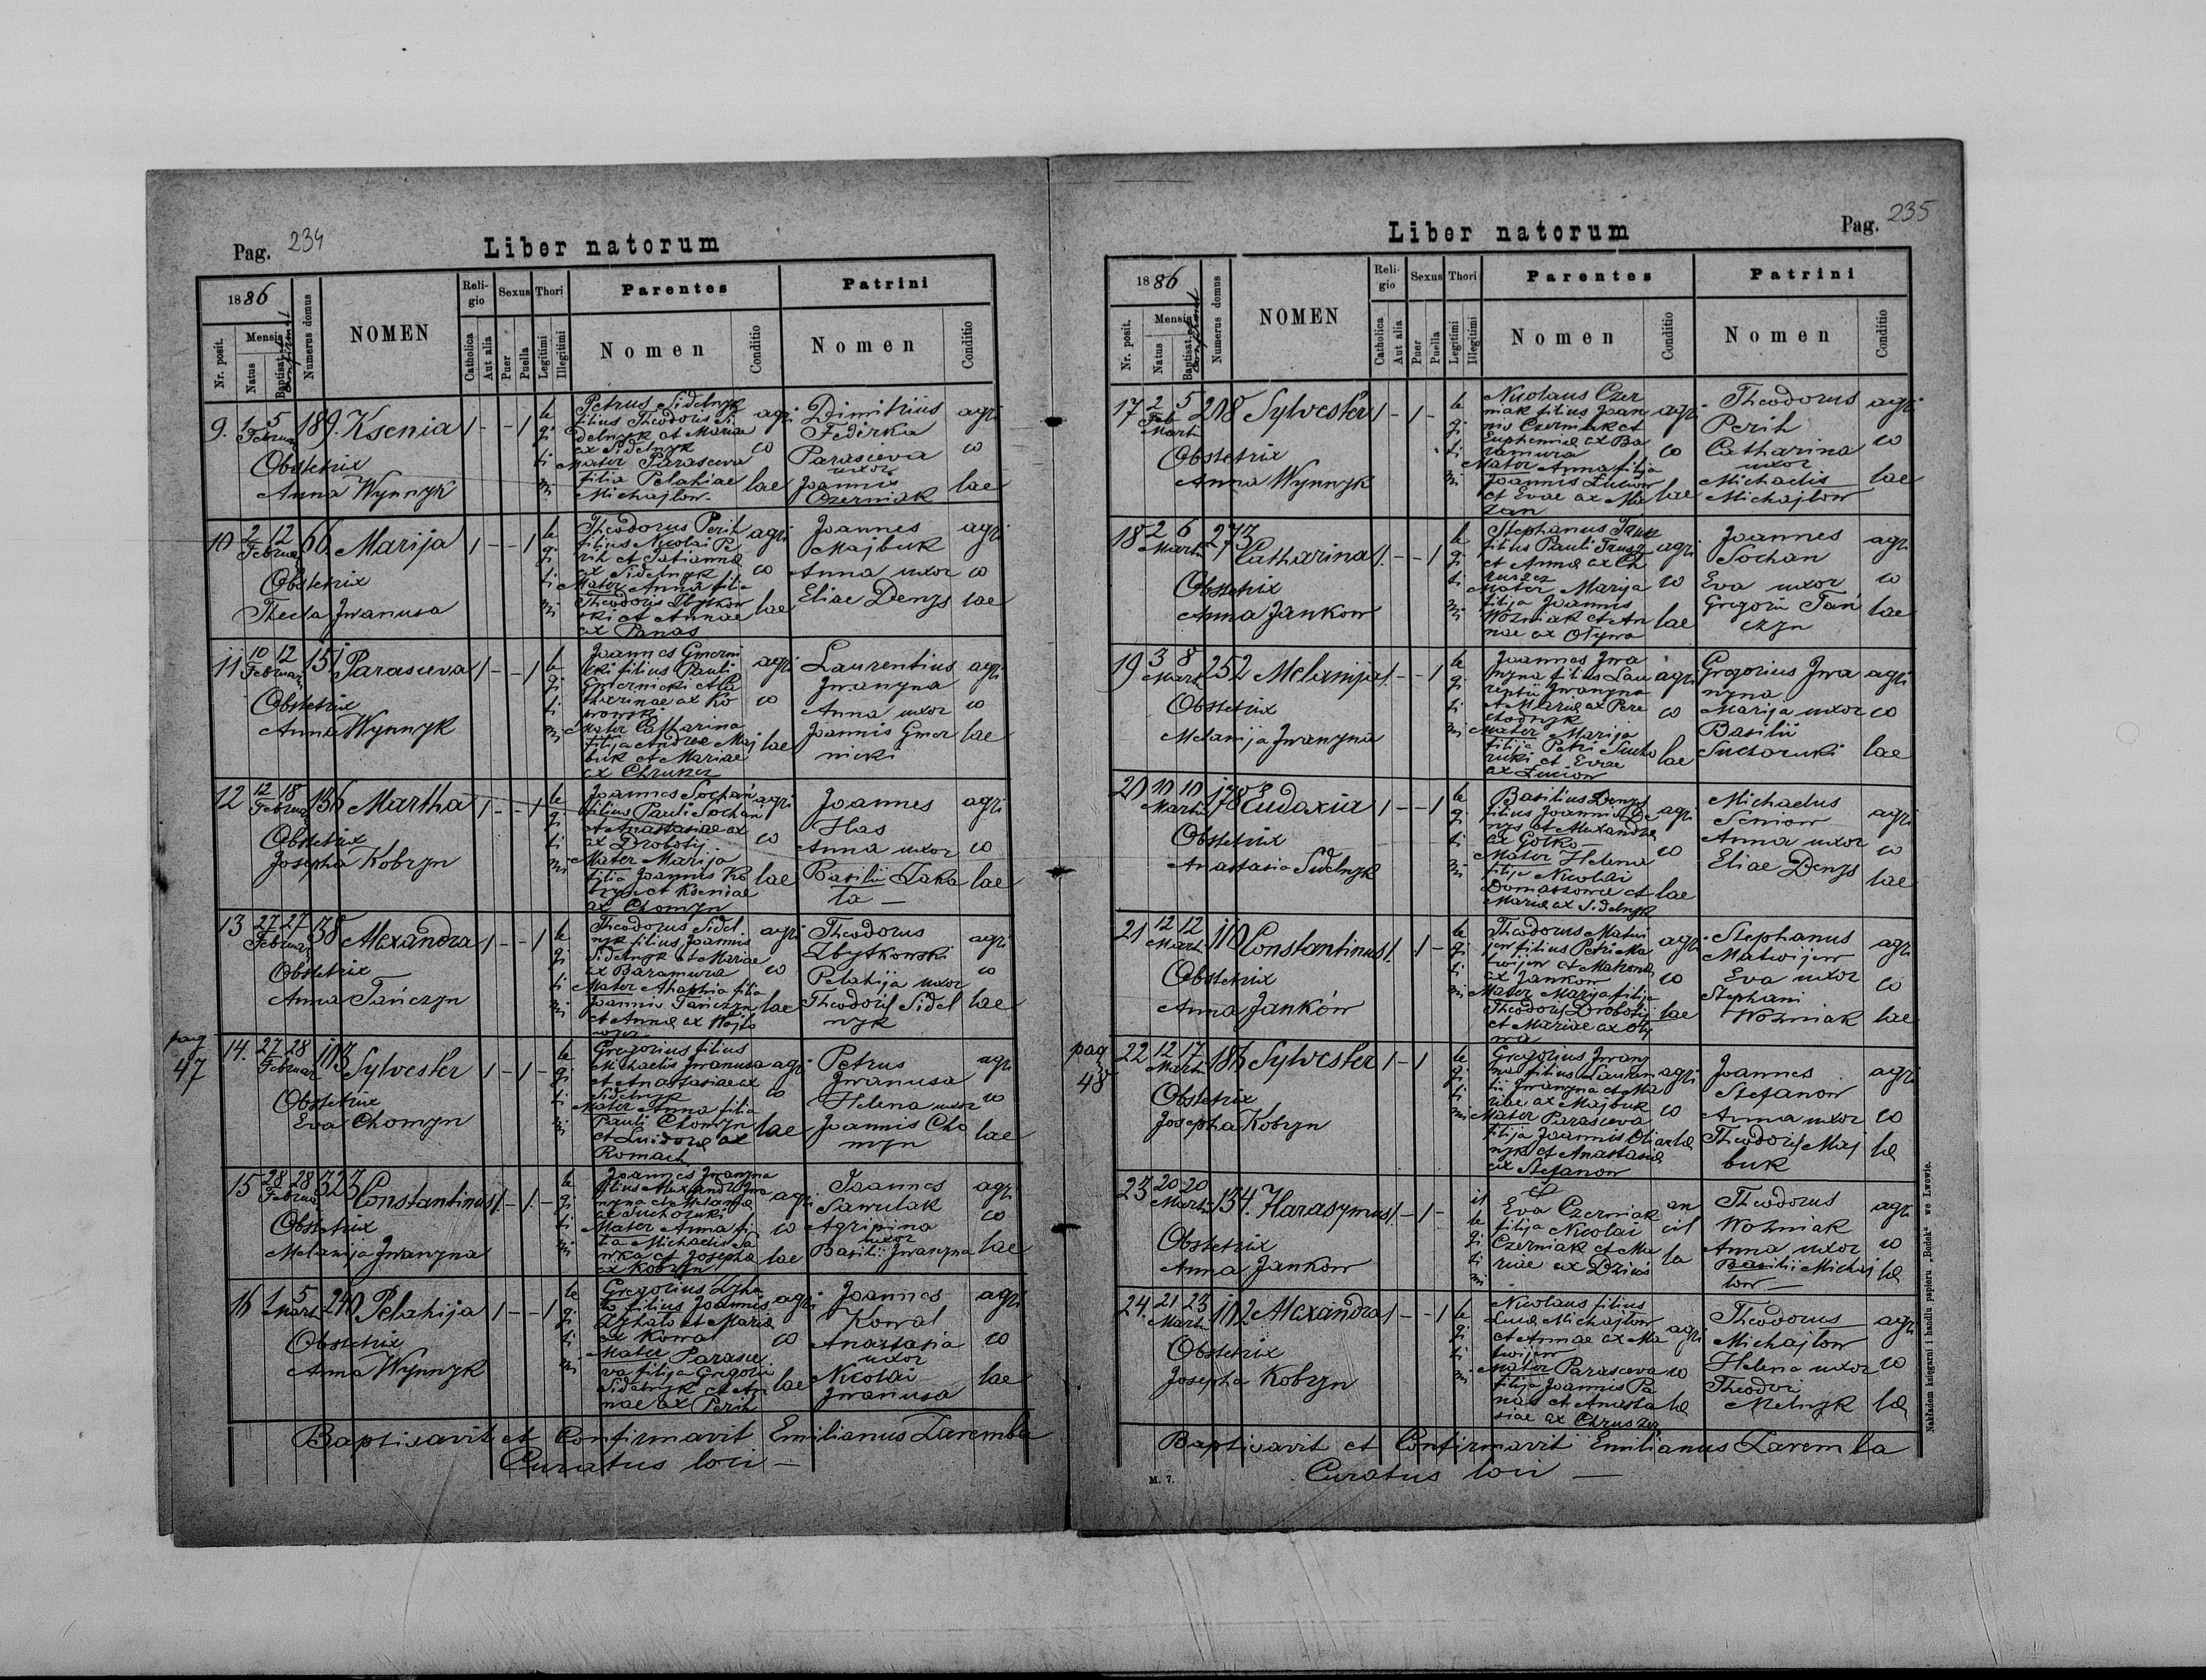 Pag. 234
Liber natorum
1886
Nr. posit.
Mensis
Natus
Baptisat. et confirmat
Numerus domus
NOMEN
Religio
Catholica
Aut alia
Sexus
Puer
Puella
Thori
Legitimi
Illegitimi
Parentes
Nomen
Conditio
Patrini
Nomen
Conditio
9. 1 5 Februar 189. Ksenia 1 - - 1 legitimi
Obstetrix
Anna Wynnyk
Petrus Sidelnyk
filius Theodori Si
delnyk et Mariae
ex Sidelnyk
Mater Parasceva
filia Pelahiae
Michajlow
agricolae
Dimitrius
Fedirka
Parasceva
uxor
Joannis
Czerniak
agricolae
10 2 12 Februar 66. Marija 1 - - 1 legitimi
Obstetrix
Thecla Iwanusa
Theodorus Perih
filius Nicolai Pe
rih et Tatianna
ex Sidelnyk
Mater Anna filia
Theodori Zbytkow
ski et Annae
ex Panas
agricolae
Joannes
Majbuk
Anna uxor
Eliae Denys
agricolae
11 10 12 Februar 151 Parasceva 1 - - 1 legitimi
Obstetrix
Anna Wynnyk
Joannes Gmerni
cki filius Pauli
Gmernicki et Ca
tharinae ex Ko
Mater Catharina
filija Andreae Maj
buk et Mariae
ex Chruszcz
agricolae
Laurentius
Iwanyna
Anna uxor
Joannis Gmer
nicki
agricolae
12 12 18 Februar 156 Martha 1 - - 1 legitimi
Obstetrix
Josepha Kobryn
Joannes Sochan
filius Pauli Sochan
et Anastasiae ex
ex Drobotij
Mater Marija
filia Joannis Ko
bryn et Kseniae
ex Chomyn
agricolae
Joannes
Has
Anna uxor
Basilii Laka
ta -
agricolae
13 27 27 Februar 38 Alexandra 1 - - 1 legitimi
Obstetrix
Anna Tańczyn
Theodorus Sidel
nyk filius Joannis
Sidelnyk et Mariae
ex Baramura
Mater Ahaphia filia
Joannis Tańczyn
et Annae ex Wojto
wycz
agricolae
Theodorus
Zbytkowski
Pelahija uxor
Theodori Sidel
nyk
agricolae
pag
47
14. 27 28 Februar 103 Sylvester 1 - 1 - legitimi
Obstetrix
Eva Chomyn
Gregorius filius
Michaelis Iwanusa
et Anastasiae ex
Sidelnyk
Mater Anna filia
Pauli Chomyn
et ex
Romach
agricolae
Petrus
Iwanusa
Helena uxor
Joannis Cho
myn
agricolae
15 28 28 Februar 323 Constantinus 1. - 1. - legitimi
Obstetrix
Melanija Iwanyna
Joannes Iwanyna
filius Alexandri Iwa
nyna et Melaniae
ex Suchoruki
Mater Anna fi
lia Michaelis Sa
wka et Josepha
ex Kobryn
agricolae
Joannes
Sawulak
Agripina
uxor
Basilii Iwanyna
agricolae
16 1 5 Marti 240 Pelahija 1 - - 1 legitimi
Obstetrix
Anna Wynnyk
Gregorius Lyha
to filius Joannis
Lyhato et Mariae
ex Kowal
Mater Parasce
va filija Gregorii
Sidelnyk et An
nae ex Perih
agricolae
Joannes
Kowal
Anastasia
uxor
Nicolai
Iwanusa
agricolae
Baptisavit et Confirmavit Emilianus Zaremba
Curatus loci -
Pag. 235
Liber natorum
1886
Nr. posit.
Mensis
Natus
Baptisat. et confirmat
Numerus domus
NOMEN
Religio
Catholica
Aut alia
Sexus
Puer
Puella
Thori
Legitimi
Illegitimi
Parentes
Nomen
Conditio
Patrini
Nomen
Conditio
17 2 5 Feb Marti 208 Sylvester 1 - 1 - legitimi
Obstetrix
Anna Wynnyk
Nicolaus Czer
niak filius Joan
nis Czerniak et
Euphemiae ex Ba
ramura
Mater Anna filija
Joannis Luciow
et Evae ex Ma
zan
agricolae
Theodorus
Perih
Catharina
uxor
Michaelis
Michajlow
agricolae
18 2 6 Marti 273 Catharina 1. - - 1 legitimi
Obstetrix
Anna Jankow
Stephanus Trusz
filius Pauli Trusz
et Annae ex Ch
ruszcz
Mater Marija
filija Joannis
Wozniak et An
nae ex Olywa
agricolae
Joannes
Sochan
Eva uxor
Gregorii Tań
czyn
agricolae
19 3 8 Marti 252 Melanija 1. - - 1 legitimi
Obstetrix
Melanija Iwanyna
Joannes Iwa
nyna filius Lau
rentii Iwanyna
et Mariae ex Pere
chodnyk
Mater Marija
filija Petri Sucho
ruki et Evae
ex Luciow
agricolae
Gregorius Iwa
nyna
Marija uxor
Basilii
Suchoruki
agricolae
20 10 10 Marti 178 Eudoxia 1 - - 1 legitimi
Obstetrix
Anastasia Sidelnyk
Basilius Denys
filius Joannis De
nys et Alexandrae
ex Golko
Mater Helena
filija Nicolai
Domaszowce et
Mariae ex Sidelnyk
agricolae
Michaelus
Seniow
Anna uxor
Eliae Denys
agricolae
21 12 12 Marti 110 Constantinus 1. - 1 - legitimi
Obstetrix
Anna Janków
Theodorus Matwi
jew filius Petri Ma
twijew et Matronae
ex Jankow
Mater Marija filija
Theodori Drobotij
et Mariae ex Oly
wa
agricolae
Stephanus
Matwijew
Eva uxor
Stephani
Wozniak
agricolae
pag
48
22 12 17 Marti 183 Sylvester 1 - 1 legitimi
Obstetrix
Josepha Kobryn
Gregorius Iwany
na filius Lauren
tii Iwanyna et Ma
riae ex Majbuk
Mater Parasceva
filija Joannis Oliar
nyk et Anastasiae
ex Stefanow
agricolae
Joannes
Stefanow
Anna uxor
Theodori Maj
buk
agricolae
23 20 20 Marti 134. Harasymus 1. - 1 - illegitimi
Obstetrix
Anna Jankow
Eva Czerniak
filija Nicolai
Czerniak et Ma
riae ex Dziuś
ancilla
Theodorus
Wozniak
Anna uxor
Basilii Michaj
low -
agricolae
24. 21 23 Marti 102 Alexandra 1 - - 1 legitimi
Obstetrix
Josepha Kobryn
Nicolaus filius
Lucae Michajlow
et Annae ex Ma
twijew
Mater Parasceva
filija Joannis Pa
nas et Anasta
siae ex Chruszcz
agricolae
Theodorus
Michajlow
Helena uxor
Theodori
Melnyk
agricolae
Baptisavit et Confirmavit Emilianus Zaremba
Curatus loci -
M. 7.
Nakładem księgarni i handlu papieru „Bodek" we Lwowie.